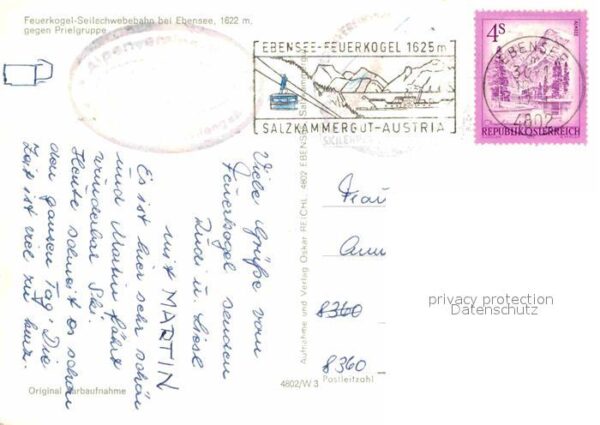 Feuerkogel-Seilschwebebahn bei Ebensee, 1622 m,
gegen Prielgruppe
EBENSEE-FEUERKOGEL 1625 m
SALZKAMMERGUT-AUSTRIA
4S
REPUBLIK ÖSTERREICH
EBENSEE
4802
Viele Grüße vom
Feuerkogel senden
Rudi u. Liesl
mit MARTIN
Es ist hier sehr schön
und Martin fährt
wunderbar Ski.
Heute schneit es schon
den ganzen Tag. Die
Zeit ist viel zu kurz.
Aufnahme und Verlag Oskar REICHL, 4802 EBENSEE
Frau
8360
8360
Postleitzahl
privacy protection
Datenschutz
4802/W 3
Original Farbaufnahme